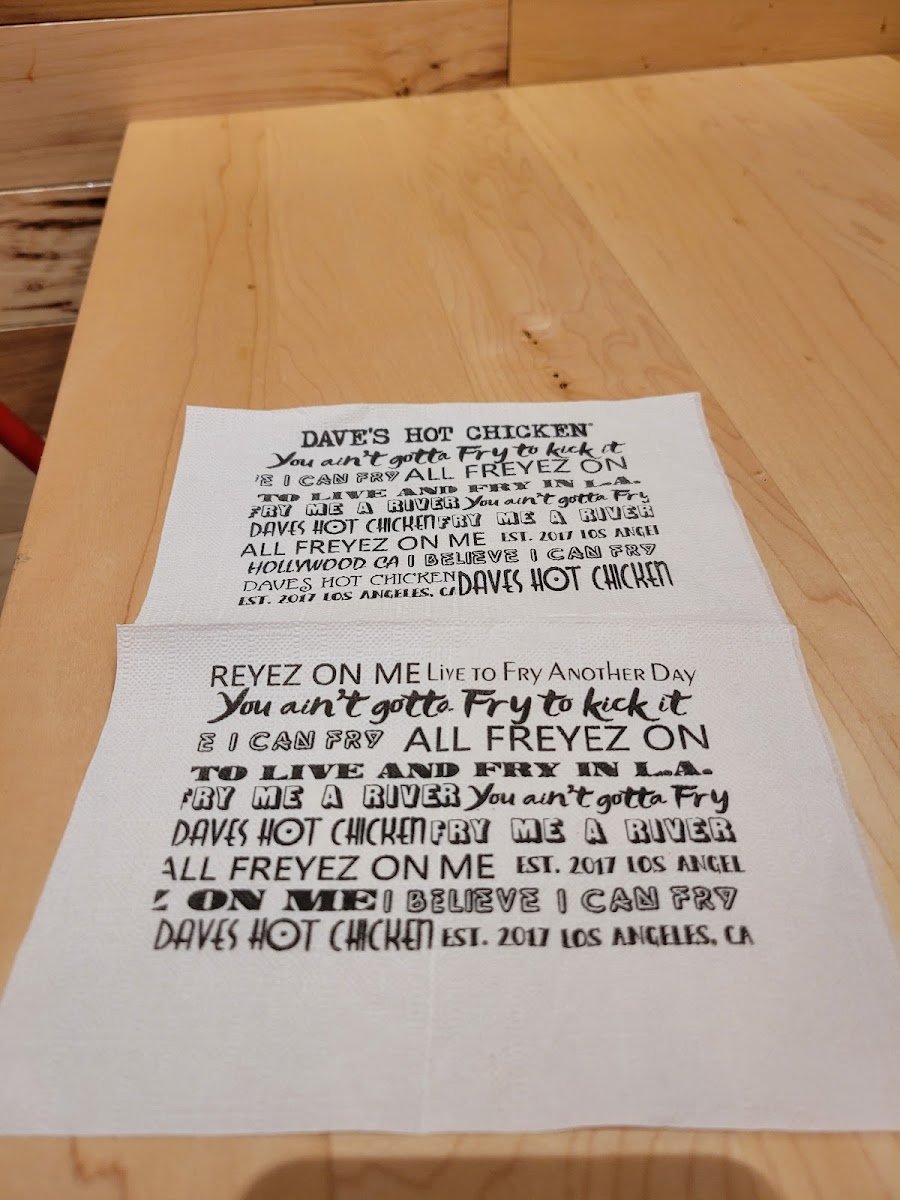 DAVE'S HOT CHICKEN
You ain't gotta Fry to kick it
E I CAN FRY ALL FREYEZ ON
TO LIVE AND FRY IN L.A.
FRY ME A RIVER You ain't gotta Fry
DAVES HOT CHICKEN FRY ME A RIVER
ALL FREYEZ ON ME EST. 2017 LOS ANGEL
HOLLYWOOD CA I BELIEVE I CAN FRY
DAVES HOT CHICKEN DAVES HOT CHICKEN
EST. 2017 LOS ANGELES, CA
REYEZ ON ME LIVE TO FRY ANOTHER DAY
You ain't gotta Fry to kick it
E I CAN FRY ALL FREYEZ ON
TO LIVE AND FRY IN L.A.
FRY ME A RIVER You ain't gotta Fry
DAVES HOT CHICKEN FRY ME A RIVER
ALL FREYEZ ON ME EST. 2017 LOS ANGEL
Z ON ME I BELIEVE I CAN FRY
DAVES HOT CHICKEN EST. 2017 LOS ANGELES, CA